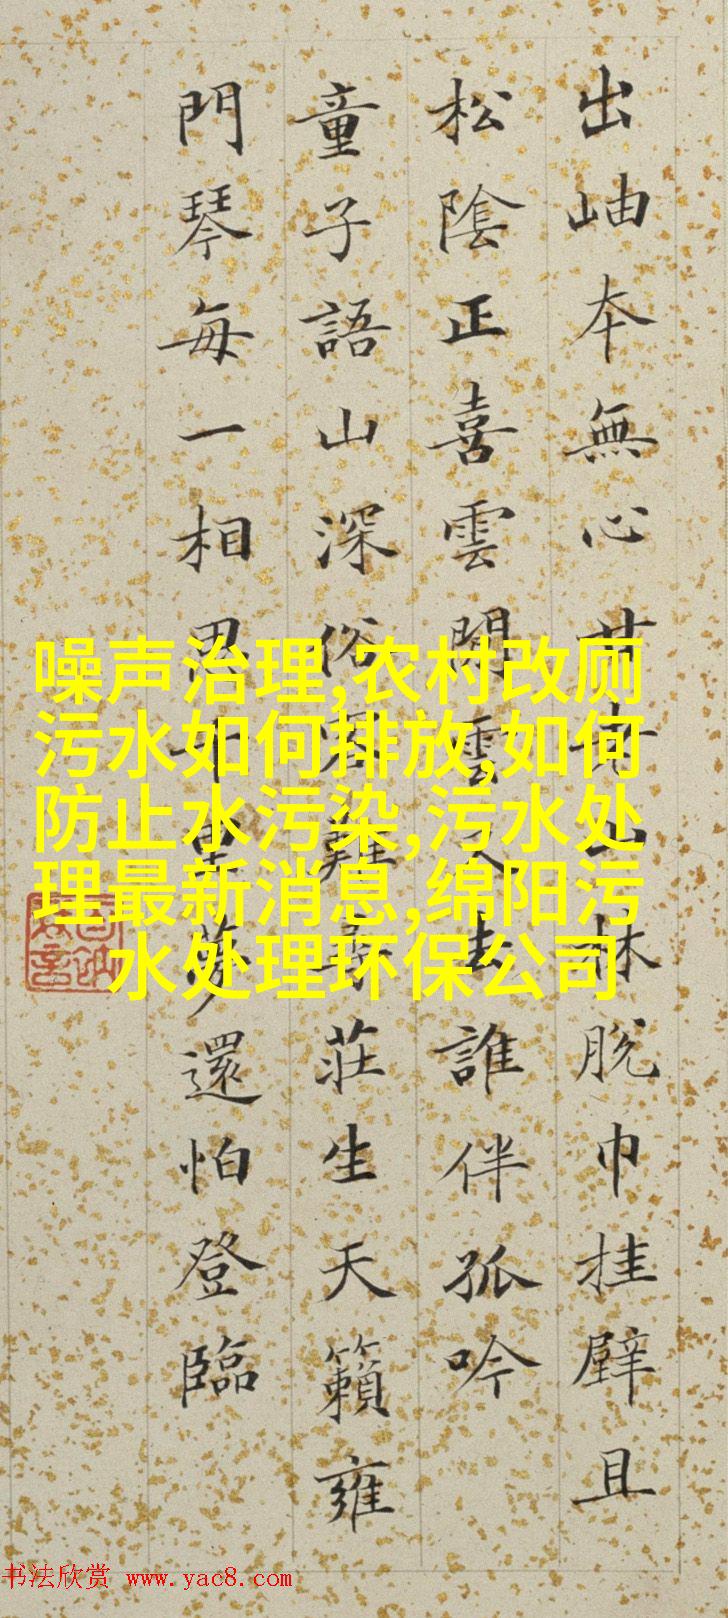 出岫本無心山林脫巾挂壁且
松陰正喜雲閒雲又去誰伴孤吟
童子語山深俗客難尋莊生天籟雍
門琴每一相思千里夢還怕登臨
噪声治理,农村改厕
污水如何排放,如何
防止水污染,污水处
理最新消息,绵阳污
水处理环保公司
书法欣赏 www.yac8.com